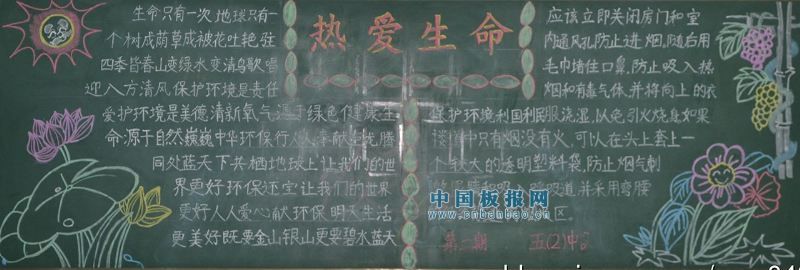 热爱生命
生命只有一次地球只有一
个树成荫草成被花吐艳驻
四季皆春山变绿水变清鸟歌唱
迎入方清风保护环境是责任
爱护环境是美德清新氧气源于绿色健康生
命源于自然巍巍中华环保行
同处蓝天下共栖地球上让我们的世
界更好环保还宝让我们的世界
更好人人爱心献环保明天生活
更美好既要金山银山更要碧水蓝天
应该立即关闭房门和室
内通风孔防止进烟,随后用
毛巾堵住口鼻,防止吸入热
烟和有毒气体,并将向上的衣
保护环境利国利民服浇湿,以免引火烧身如果
楼道中只有烟没有火,可以在头上套上一
个较大的透明塑料袋,防止烟气刺
吸道,并采用弯腰
中国板报网
www.cnbanbao.cn
区
第二期 五(2)中